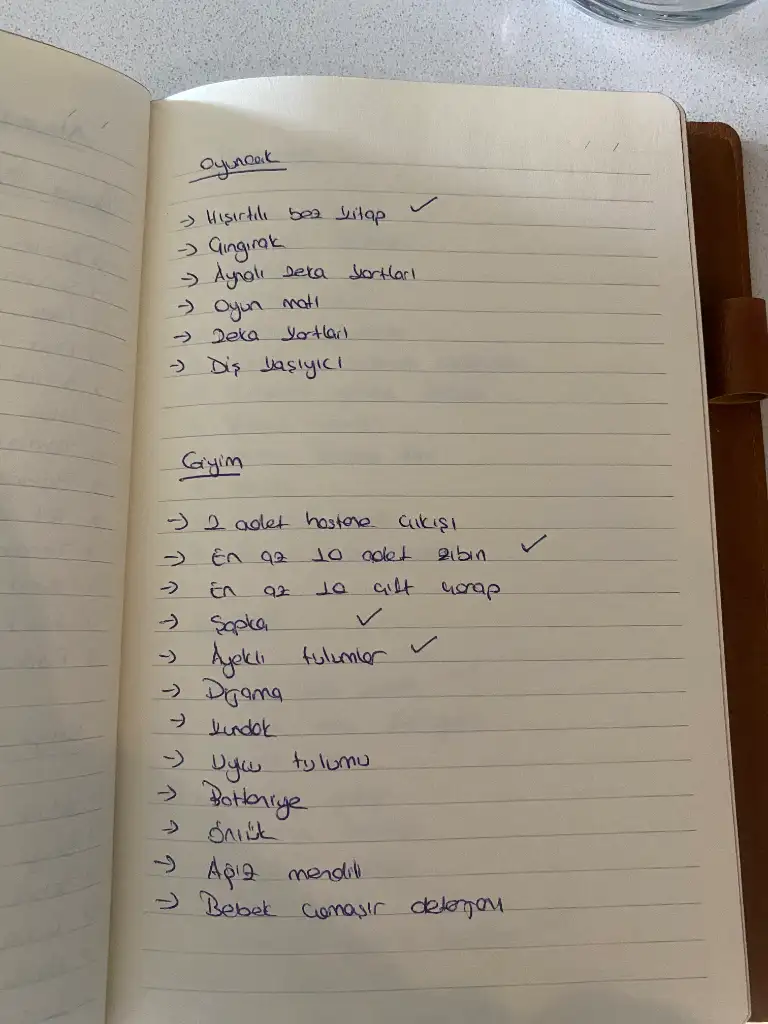 Oyuncak
→ Hışırtılı bez kitap ✓
→ Çıngırak
→ Aynalı zeka kartları
→ Oyun matı
→ Zeka kartları
→ Diş kaşıyıcı
Giyim
→ 2 adet hastane çıkışı
→ En az 10 adet zıbın ✓
→ En az 10 çift çorap
→ Şapka ✓
→ Ayaklı tulumlar ✓
→ Pijama
→ Kundak
→ Uyku tulumu
→ Battaniye
→ Önlük
→ Ağız mendili
→ Bebek çamaşır deterjanı